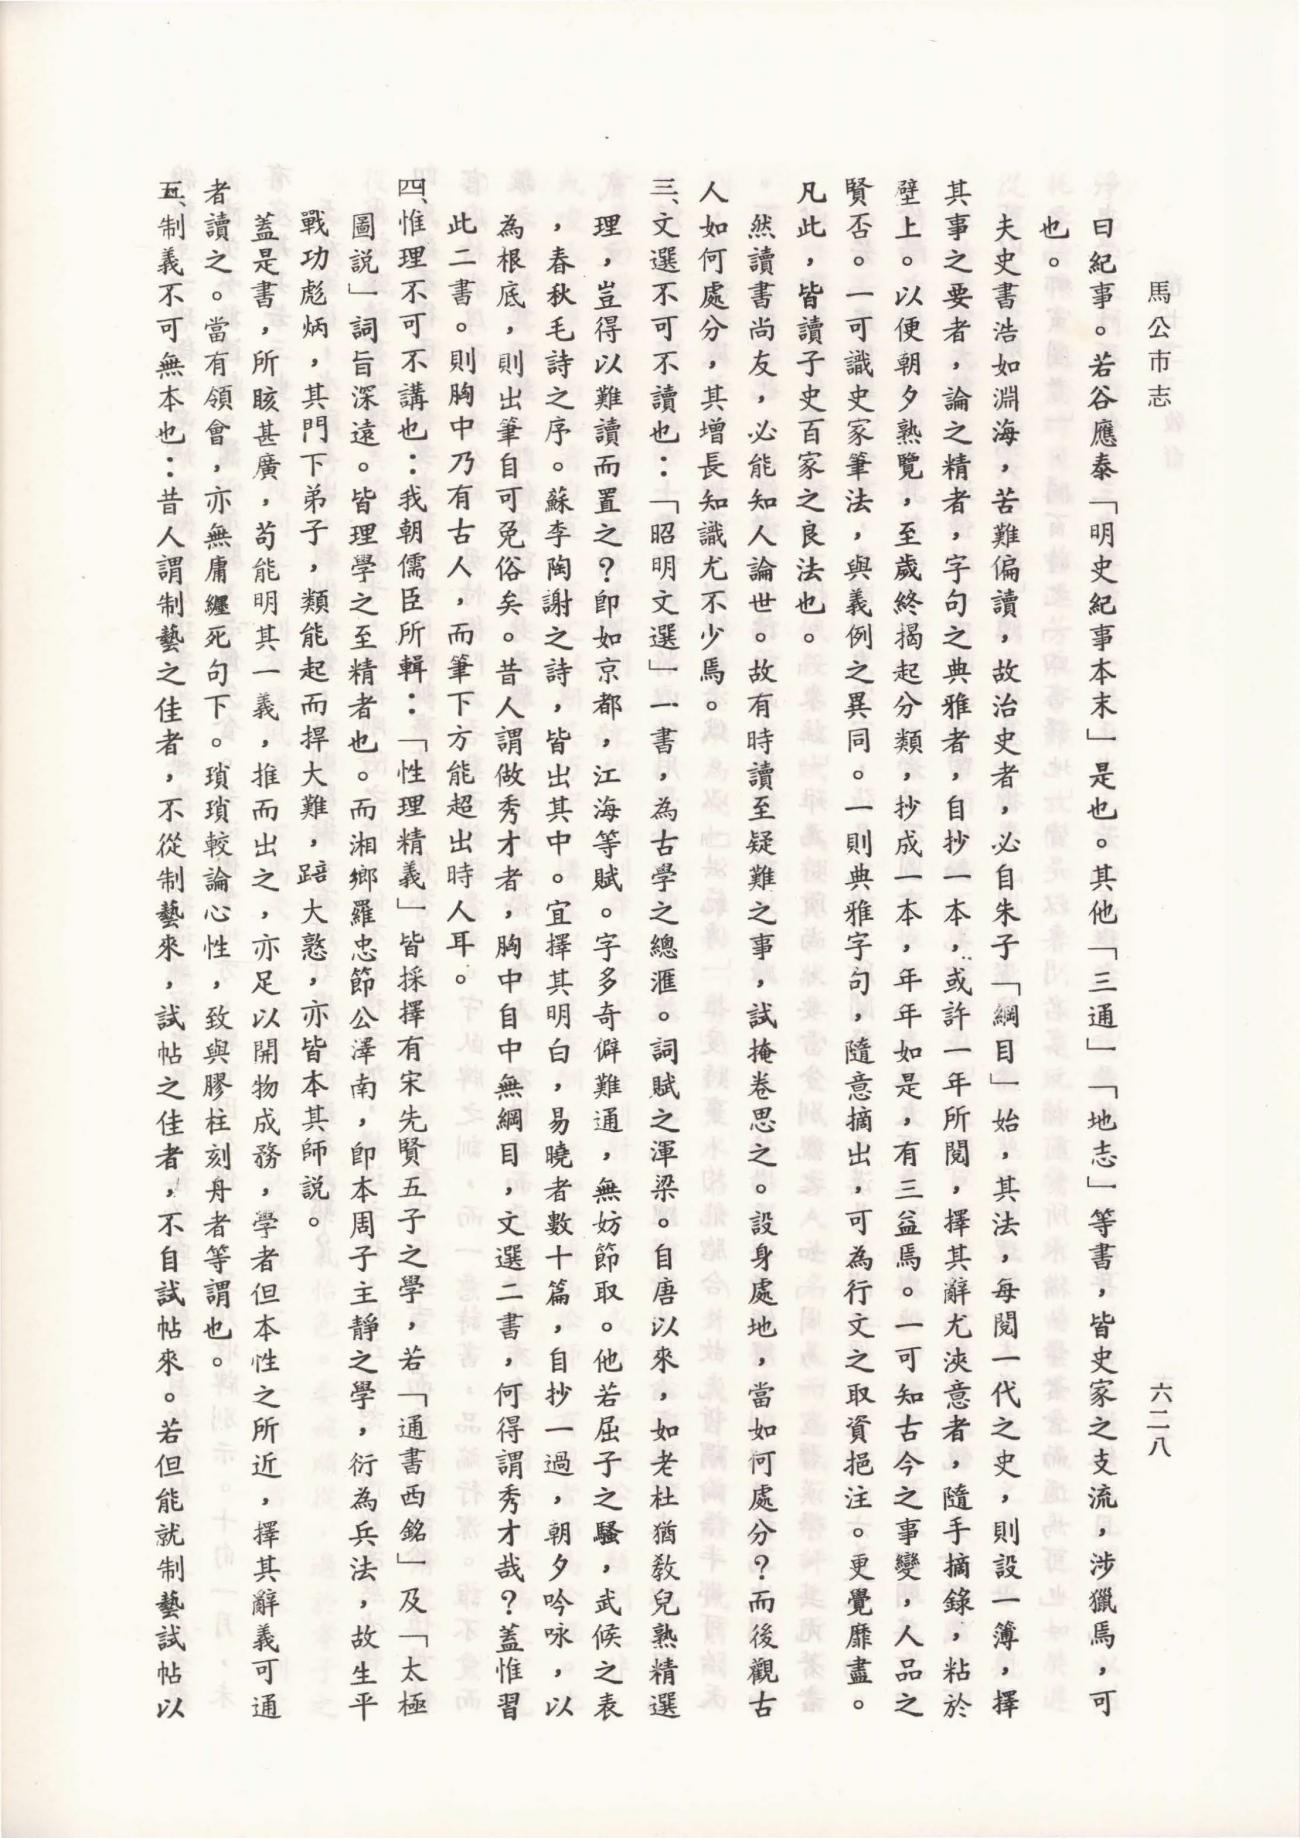 馬公市志
六二八
曰紀事。若谷應泰「明史紀事本末」是也。其他「三通」「地志」等書，皆史家之支流，涉獵焉，可
也。
夫史書浩如淵海，苦難偏讀，故治史者，必自朱子「綱目」始，其法，每閱一代之史，則設一簿，擇
其事之要者，論之精者，字句之典雅者，自抄一本，或許一年所閱，擇其辭尤浹意者，隨手摘錄，粘於
壁上。以便朝夕熟覽，至歲終揭起分類，抄成一本，年年如是，有三益焉。一可知古今之事變，人品之
賢否。一可識史家筆法，與義例之異同。一則典雅字句，隨意摘出，可為行文之取資挹注。更覺靡盡。
凡此，皆讀子史百家之良法也。
然讀書尚友，必能知人論世。故有時讀至疑難之事，試掩卷思之。設身處地，當如何處分？而後觀古
人如何處分，其增長知識尤不少焉。
三、文選不可不讀也：「昭明文選」一書，為古學之總滙。詞賦之渾梁。自唐以來，如老杜猶教兒熟精選
理，豈得以難讀而置之？即如京都，江海等賦。字多奇僻難通，無妨節取。他若屈子之騷，武候之表
，春秋毛詩之序。蘇李陶謝之詩，皆出其中。宜擇其明白，易曉者數十篇，自抄一過，朝夕吟咏，以
為根底，則出筆自可免俗矣。昔人謂做秀才者，胸中自中無綱目，文選二書，何得謂秀才哉？蓋惟習
此二書。則胸中乃有古人，而筆下方能超出時人耳。
四、惟理不可不講也：我朝儒臣所輯：「性理精義」皆採擇有宋先賢五子之學，若「通書西銘」及「太極
圖説」詞旨深遠。皆理學之至精者也。而湘鄉羅忠節公澤南，即本周子主靜之學，衍為兵法，故生平
戰功彪炳，其門下弟子，類能起而捍大難，踣大憝，亦皆本其師説。
蓋是書，所賅甚廣，苟能明其一義，推而出之，亦足以開物成務，學者但本性之所近，擇其辭義可通
者讀之。當有領會，亦無庸纏死句下。瑣瑣較論心性，致與膠柱刻舟者等謂也。
五、制義不可無本也：昔人謂制藝之佳者，不從制藝來，試帖之佳者，不自試帖來。若但能就制藝試帖以